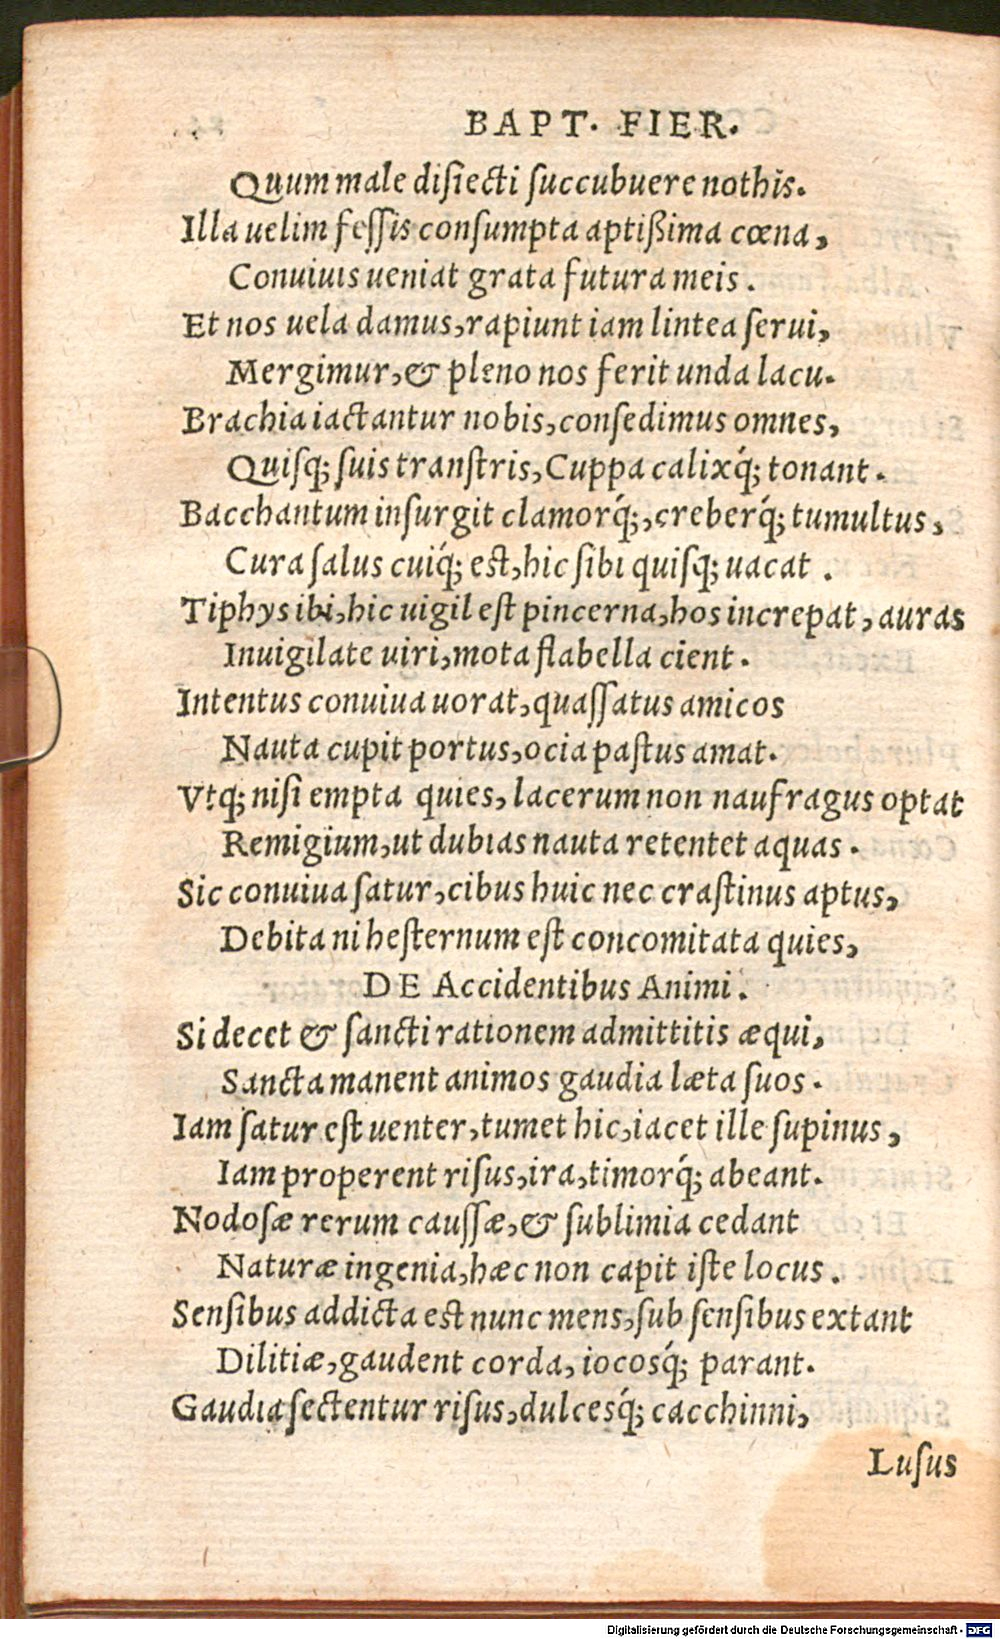 BAPT. FIER.
Quum male disiecti succubuere nothis.
Illa uelim fessis consumpta aptißima cœna,
Conuiuis ueniat grata futura meis.
Et nos uela damus, rapiunt iam lintea serui,
Mergimur, & pleno nos ferit unda lacu.
Brachia iactantur nobis, consedimus omnes,
Quisq; suis transtris, Cuppa calixq́; tonant.
Bacchantum insurgit clamorq́;, creberq́; tumultus,
Cura salus cuiq́; est, hic sibi quisq; uacat.
Tiphys ibi, hic uigil est pincerna, hos increpat, auras
Inuigilate uiri, mota flabella cient.
Intentus conuiua uorat, quassatus amicos
Nauta cupit portus, ocia pastus amat.
Vtq; nisi empta quies, lacerum non naufragus optat
Remigium, ut dubias nauta retentet aquas.
Sic conuiua satur, cibus huic nec crastinus aptus,
Debita ni hesternum est concomitata quies,
DE Accidentibus Animi.
Si decet & sancti rationem admittitis æqui,
Sancta manent animos gaudia læta suos.
Iam satur est uenter, tumet hic, iacet ille supinus,
Iam properent risus, ira, timorq́; abeant.
Nodosæ rerum caussæ, & sublimia cedant
Naturæ ingenia, hæc non capit iste locus.
Sensibus addicta est nunc mens, sub sensibus extant
Dilitiæ, gaudent corda, iocosq́; parant.
Gaudia sectentur risus, dulcesq́; cacchinni,
Lusus
Digitalisierung gefördert durch die Deutsche Forschungsgemeinschaft - DFG